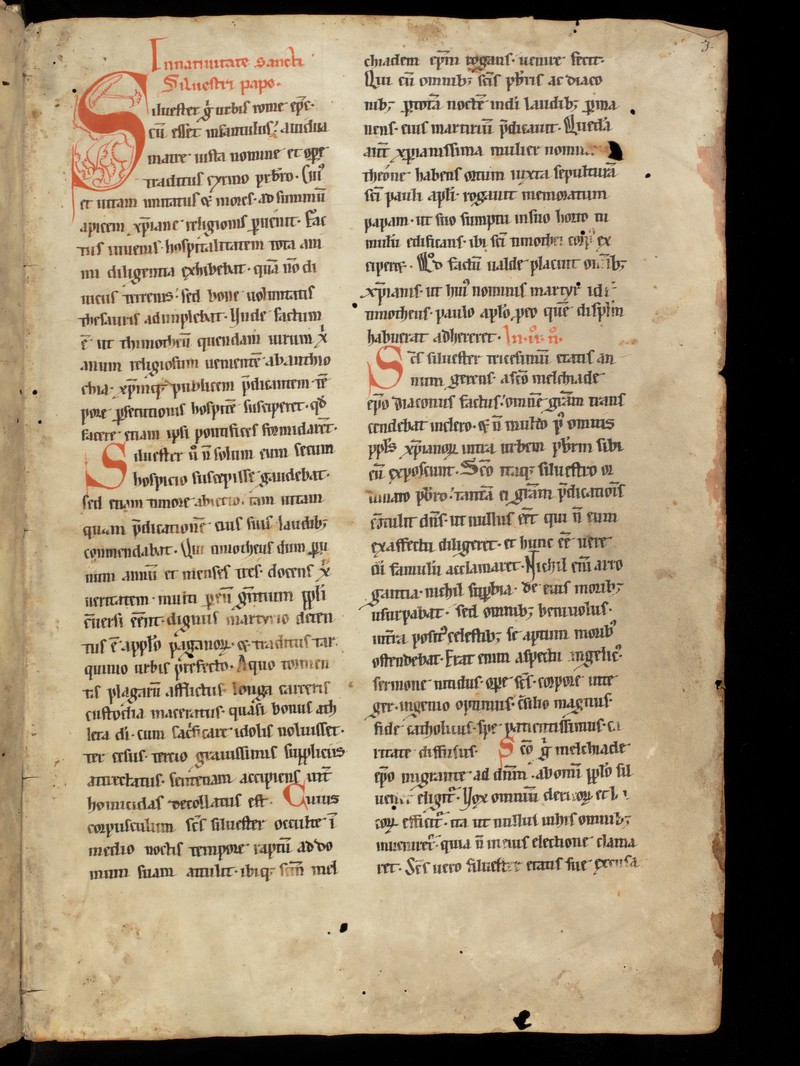 3.
In natiuitate sancti
Siluestri pape.
Siluester g̃ urbis rome ep̃s.
cũ esset infantulus; a uidua
matre iusta nomine et ope
traditus cyrino pr̃bro. Cui᾿
et uitam imitatus & mores. ad summũ
apicem xp̃iane religionis puenit. Fac
tus iuuenis. hospitalitatem tota ani
mi diligentia exhibebat. quã ñ di
uicus terrenis. sed bone uoluntatis
thesauris adimplebat. Unde factum
ẽ ut thimotheũ quendam uirum x̃
anum religiosum uenientẽ ab anthio
chia. xp̃mq; publicem p̃dicantem tẽ
pore psecutionis hospitẽ susciperet. qd̃
facere etiam ipsi pontifices formidarẽt.
Siluester ũ ñ solum eum secum
hospicio suscepisse gaudebat.
sed etiam timore abiecto. tam uitam
quam p̃dicationẽ eius suis laudib;
commendabat. Qui timotheus dum p u
num annũ et menses tres. docens x̃
ueritatem. multi p eũ gentium pp̃li
cõuersi eẽnt. dignus martyrio deten
tus ẽ a pplo paganoꝝ. & traditus tar
quinio urbis prefecto. A quo
tis plagarũ afflictus. longa carceris
custodia maceratus. quasi bonus ath
leta di. cum sac̃ficare idolis noluisset.
ter cesus. tercio grauissimis suppliciis
attrectatus. sententiam accipiens int̃
homicidas decollatus est. Cuius
corpusculum sc̃s siluester occulte ĩ
medio noctis tempore raptũ ad do
mum suam attulit. ibiq; sc̃m mel
chiadem ep̃m rogans. uenire fecit.
Qui cũ omnib; sc̃is pr̃bris ac diaco
nib; p totã noctẽ in di laudib; pma
nens. eius martiriũ p̃dicauit. Quedã
aut̃ xp̃ianissima mulier nomin
theone habens ortum iuxta sepulturã
sc̃i pauli apl̃i. rogauit memoratum
papam. ut suo sumptu in suo horto tu
mulũ edificans. ibi sc̃i timothei corp᾿ ex
cipere. Qd̃ factũ ualde placuit omib;
xp̃ianis. ut hui᾿ nominis martyr᾿ idi
timotheus. paulo apl̃o. p eo quẽ discipl̃m
habuerat adhereret.
Sc̃s siluester tricesimũ etatis an
num gerens. a sc̃o melchiade
ep̃o diaconus factus. omnẽ gr̃am trans
cendebat in clero. & ñ multo p᾿ omnis
ppl̃s xp̃ianoꝝ intra urbem pr̃brm sibi
eũ exposcunt. Sc̃o itaq; siluestro or
dinato pr̃bro. tantã ei gr̃am p̃dicationis
cõtulit dñs. ut nullus eẽt qui ñ eum
ex affectu diligeret. et hunc eẽ uere
di famulũ acclamaret. Nichil eni arro
gantia. nichil supbia. de eius morib;
usurpabat. sed omnib; beniuolus.
intra post᾿ celestib; se aptum morib᾿
ostendebat. Erat enim aspectu angelic᾿
sermone nitidus. ope sc̃s. corpore inte
ger. ingenio optimus. cõsilio magnus.
fide catholicus. spe patientissimus. ca
ritate diffusus. Sc̃o g̃ melchiade
ep̃o migrante ad dñm. ab omi pplo sil
uester eligit᾿. Vox omnium
efficit᾿. ita ut nullus in his omnib;
inueniret᾿. quia ñ in eius electione clama
ret. Sc̃s uero siluester etatis sue